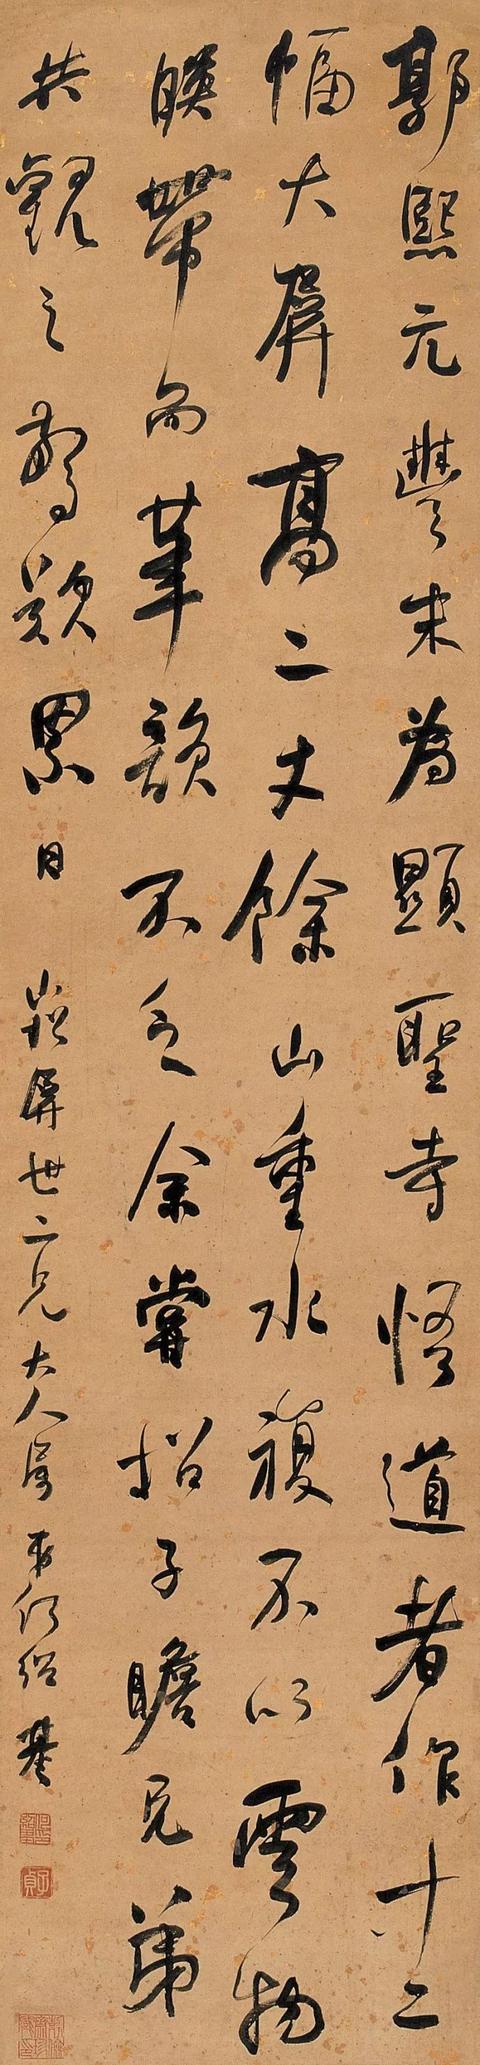 郭熙元豐末為顯聖寺悟道者作十二
幅大屏高二丈餘山重水複不以雲物
映帶而筆韻不乏余嘗招子瞻兄弟
共觀之驚歎累日
崧屏世二兄大人屬 弟何紹基